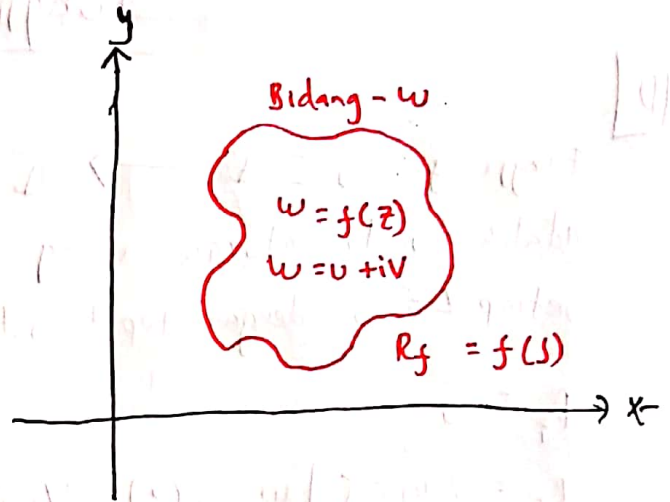 y
Bidang - W
W = f(z)
W = u + iV
Rf = f(S)
x